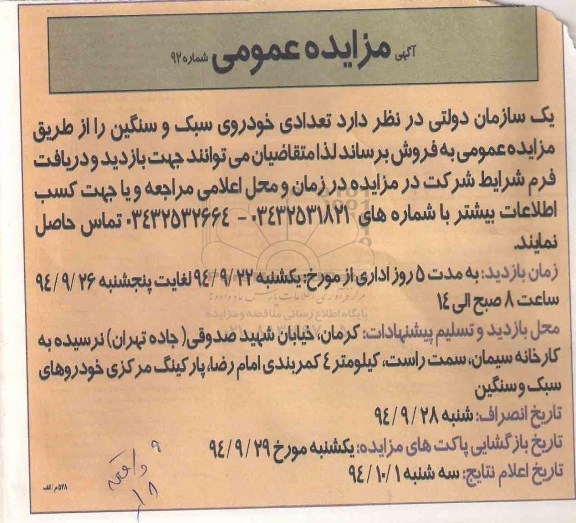 آگهی مزایده عمومی شماره ۹۲
یک سازمان دولتی در نظر دارد تعدادی خودروی سبک و سنگین را از طریق
مزایده عمومی به فروش برساند لذا متقاضیان می توانند جهت بازدید و دریافت
فرم شرایط شرکت در مزایده در زمان و محل اعلامی مراجعه و یا جهت کسب
اطلاعات بیشتر با شماره های ۰۳۴۳۲۵۳۱۸۲۱ – ۰۳۴۳۲۵۳۲۶۶۴ تماس حاصل
نمایند.
زمان بازدید: به مدت ۵ روز اداری از مورخ: یکشنبه ۹۴/۹/۲۲ لغایت پنجشنبه ۹۴/۹/۲۶
ساعت ۸ صبح الی ۱۴
پایگاه اطلاع رسانی مناقصه و مزایده
محل بازدید و تسلیم پیشنهادات: کرمان، خیابان شهید صدوقی( جاده تهران) نرسیده به
کارخانه سیمان، سمت راست، کیلومتر ۴ کمربندی امام رضا، پارکینگ مرکزی خودروهای
سبک و سنگین
تاریخ انصراف: شنبه ۹۴/۹/۲۸
تاریخ بازگشایی پاکت های مزایده: یکشنبه مورخ ۹۴/۹/۲۹
تاریخ اعلام نتایج: سه شنبه ۹۴/۱۰/۱
۵۲۸م/الف